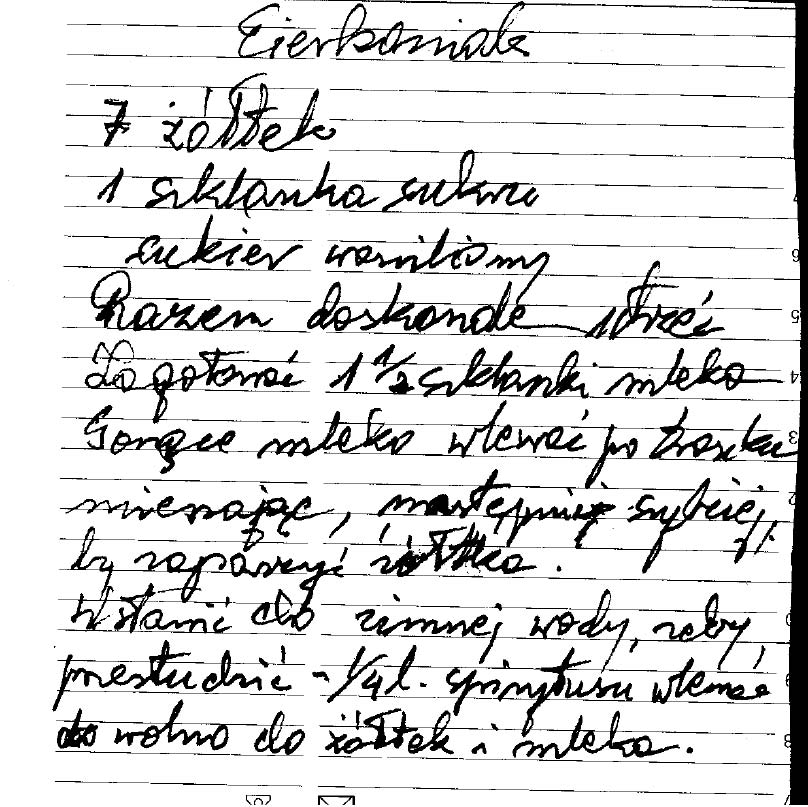 Eierkoniak
7 żółtek
1 szklanka cukru
cukier waniliowy
Razem doskonale utrzeć
Zagotować 1 1/2 szklanki mleka
Gorące mleko wlewać po troszku
mieszając, następnie szybciej,
by zaparzyć żółtka.
Wstawić do zimnej wody, żeby,
przestudzić - 1/4 l. spirytusu wlewać
do wolno do żółtek i mleka.